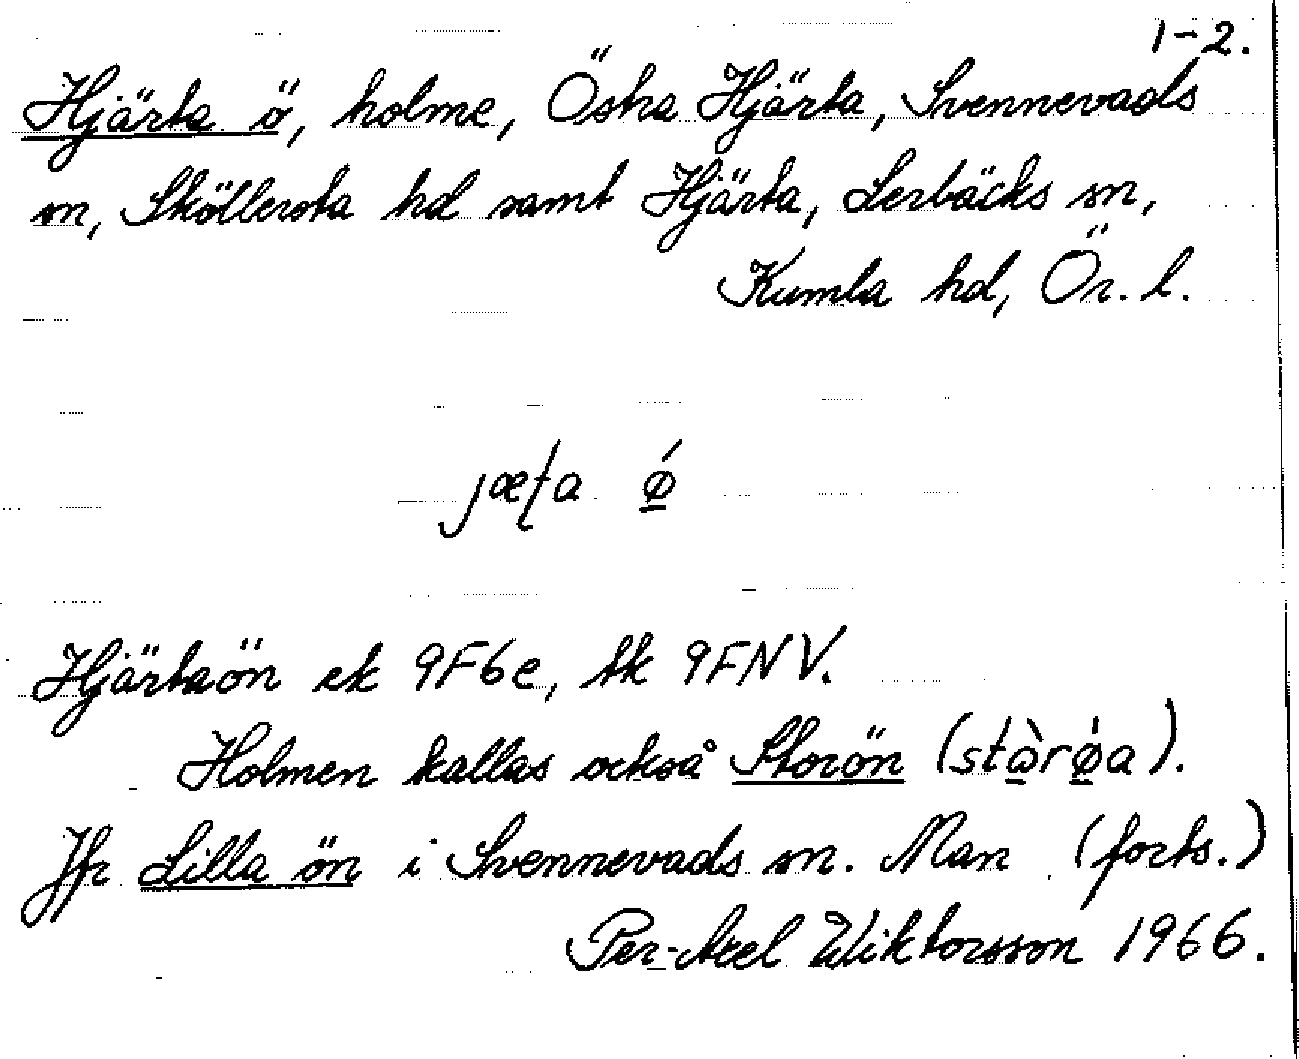 1-2.
Hjärta ö, holme, Östra Hjärta, Svennevads
sn, Sköllersta hd samt Hjärta, Lerbäcks sn,
Kumla hd, Ör. l.
jæʈa ǿ̲
Hjärtaön ek 9F6e, tk 9FNV.
Holmen kallas också Storön (stὼ̲rø̲̍a).
Jfr Lilla ön i Svennevads sn. Man (forts.)
Per-Axel Wiktorsson 1966.